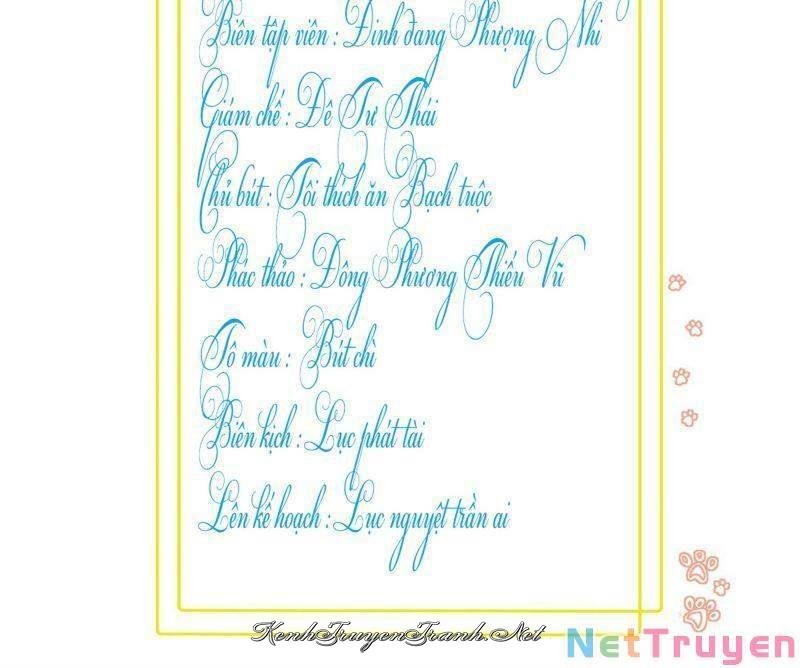 Biên tập viên : Đinh đang Phượng Nhi
Giám chế : Đê Tư Thái
Chủ bút : Tôi thích ăn Bạch tuộc
Phác thảo : Đông Phương Thiếu Vũ
Tô màu : Bút chì
Biên kịch : Lục phát tài
Lên kế hoạch : Lục nguyệt trần ai
KenhTruyenTranh.Net
NetTruyen